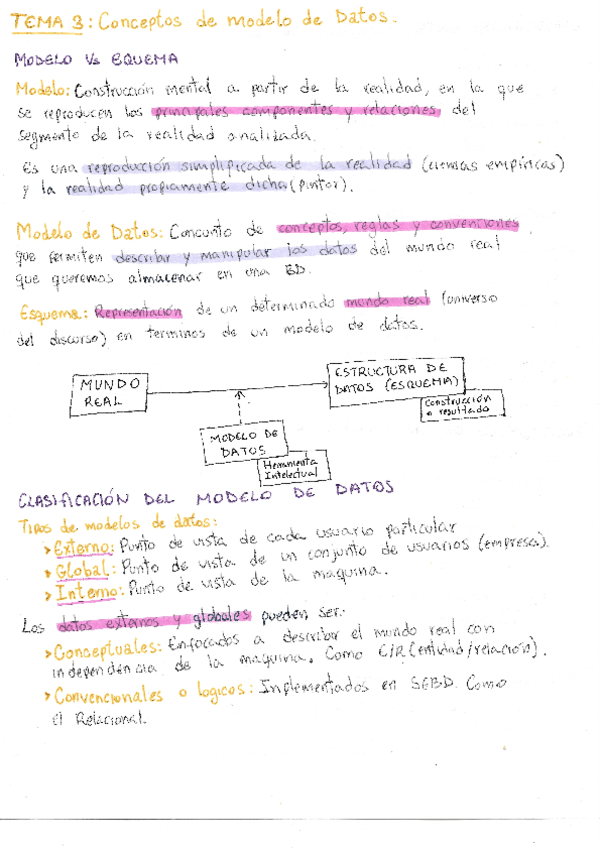 TEMA 3: Conceptos de modelo de Datos.
MODELO Vs EQUEMA
Modelo: Construcción mental a partir de la realidad, en la que
se reproducen los principales componentes y relaciones del
segmento de la realidad analizada.
Es una reproducción simplificada de la realidad (ciencias empíricas)
y la realidad propiamente dicha (pintor).
Modelo de Datos: Concunto de conceptos, reglas y convenciones
que permiten describir y manipular los datos del mundo real
que queremos almacenar en una BD.
Esquema: Representación de un determinado mundo real (universo
del discurso) en terminos de un modelo de datos.
MUNDO
REAL
ESTRUCTURA DE
DATOS (ESQUEMA)
Construcción
o resultado
MODELO DE
DATOS
Herramienta
Intelectual
CLASIFICACIÓN DEL MODELO DE DATOS
Tipos de modelos de datos:
> Externo: Punto de vista de cada usuario particular
> Global: Punto de vista de un conjunto de usuarios (empresa).
> Interno: Punto de vista de la maquina.
Los datos externos y globales pueden ser:
> Conceptuales: Enfocados a describir el mundo real con
independencia de la maquina. Como E/R (entidad/relación).
> Convencionales o logicos: Implementados en SGBD. Como
el Relacional.